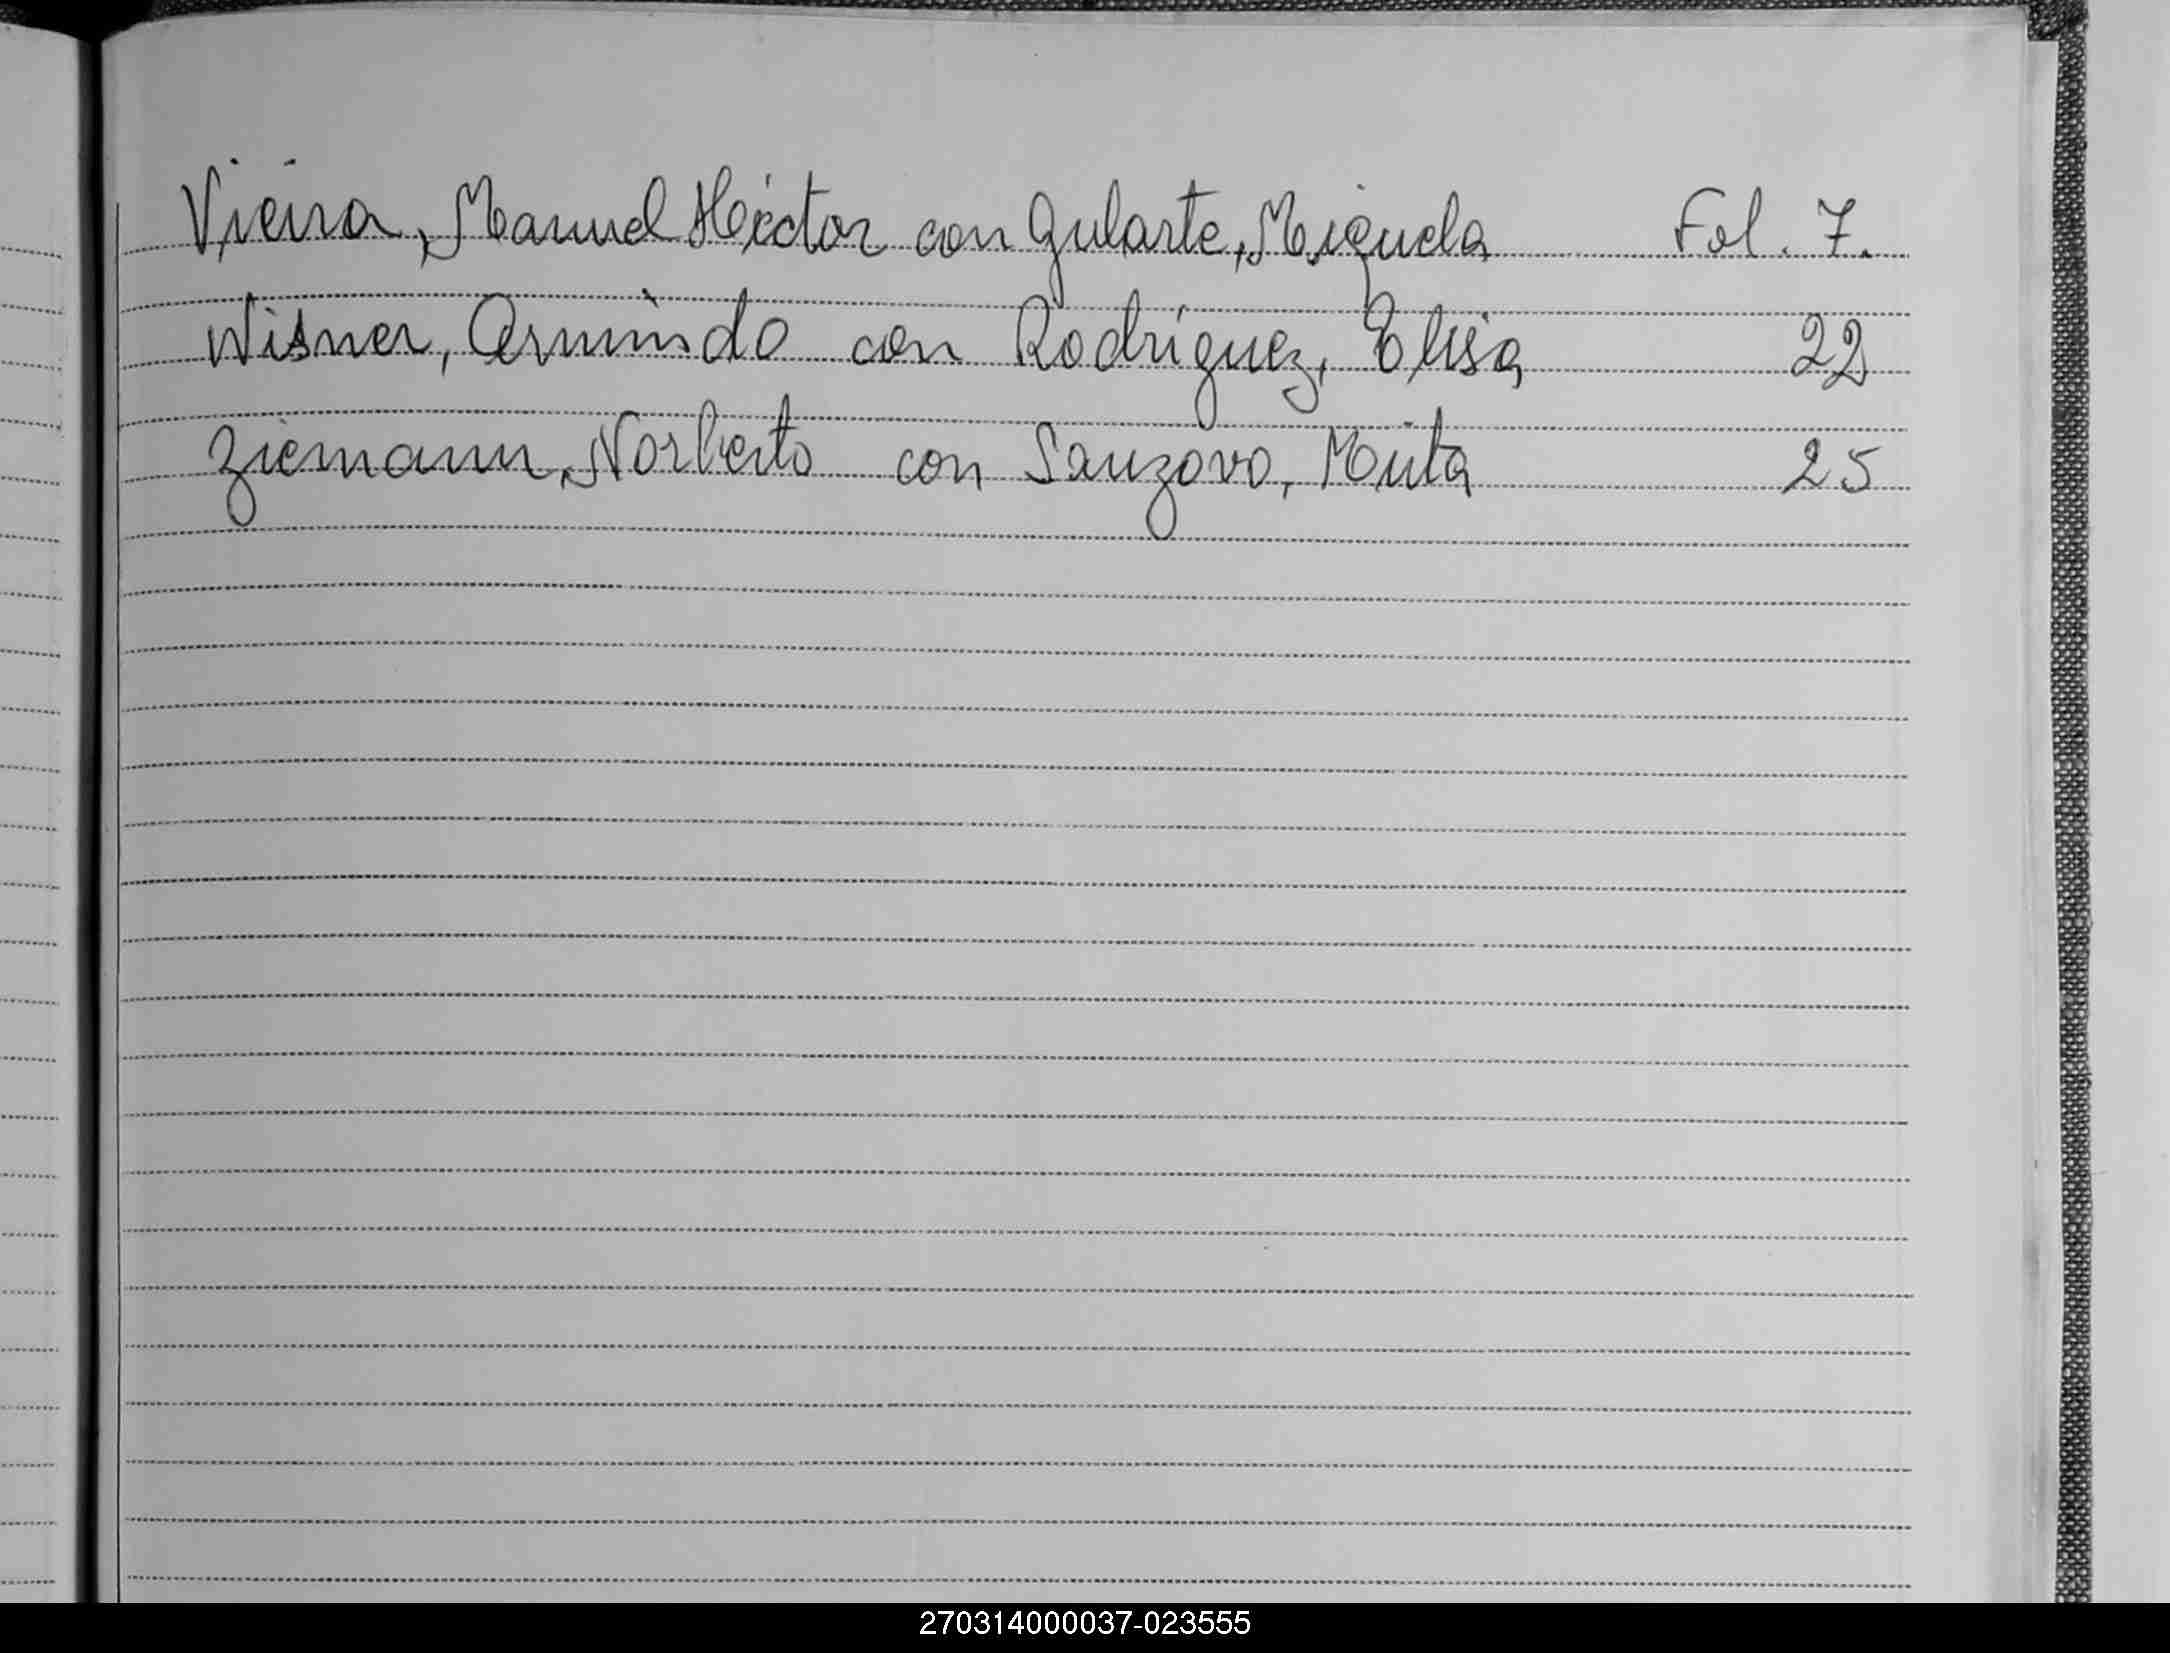 Vieira, Manuel Héctor con Gularte, Miguela Fol. 7.
Wisner, Armindo con Rodríguez, Elisa 22
Ziemann, Norberto con Sanzovo, Mirta 25
270314000037-023555